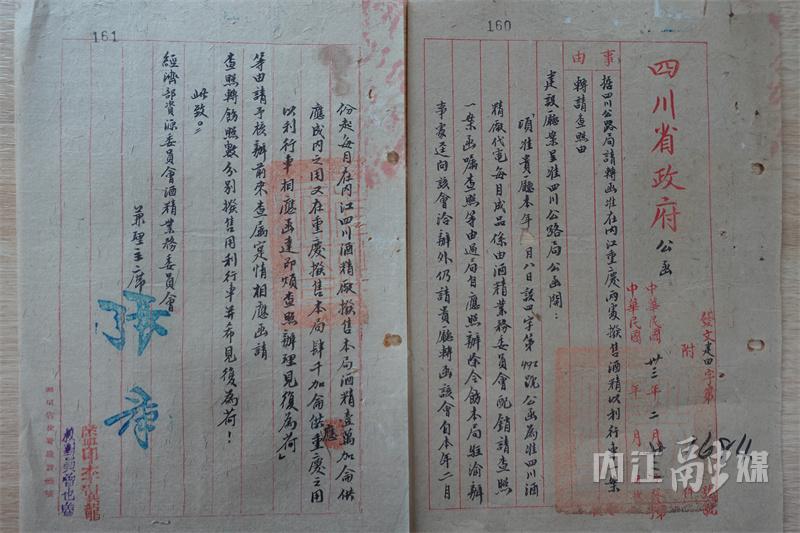 160
四川省政府公函
發文建四字第
中華民國卅三年二月
中華民國 年 月
附 件
事由
據四川公路局請轉函准在內江重慶兩處撥售酒精以利行車一案
轉請查照由
建設廳案呈准四川公路局公函開：
「頃准貴廳本年 月八日設四字第 號公函為准四川酒
精廠代電每月成品係由酒精業務委員會配銷請查照
一案函囑查照等由過局自應照辦除令飭本局駐渝辦
事處逕向該會洽辦外仍請貴廳轉函該會自本年二月
161
份起每月在內江四川酒精廠撥售本局酒精壹萬加侖供
應成內之用又在重慶撥售本局肆千加侖供應重慶之用
以利行車相應函達即煩查照辦理見復為荷」
等由請予核辦前來查屬實情相應函請
查照轉飭照數分別撥售用利行車并希見復為荷！
此致
經濟部資源委員會酒精業務委員會
兼理主席
張羣
內江融媒